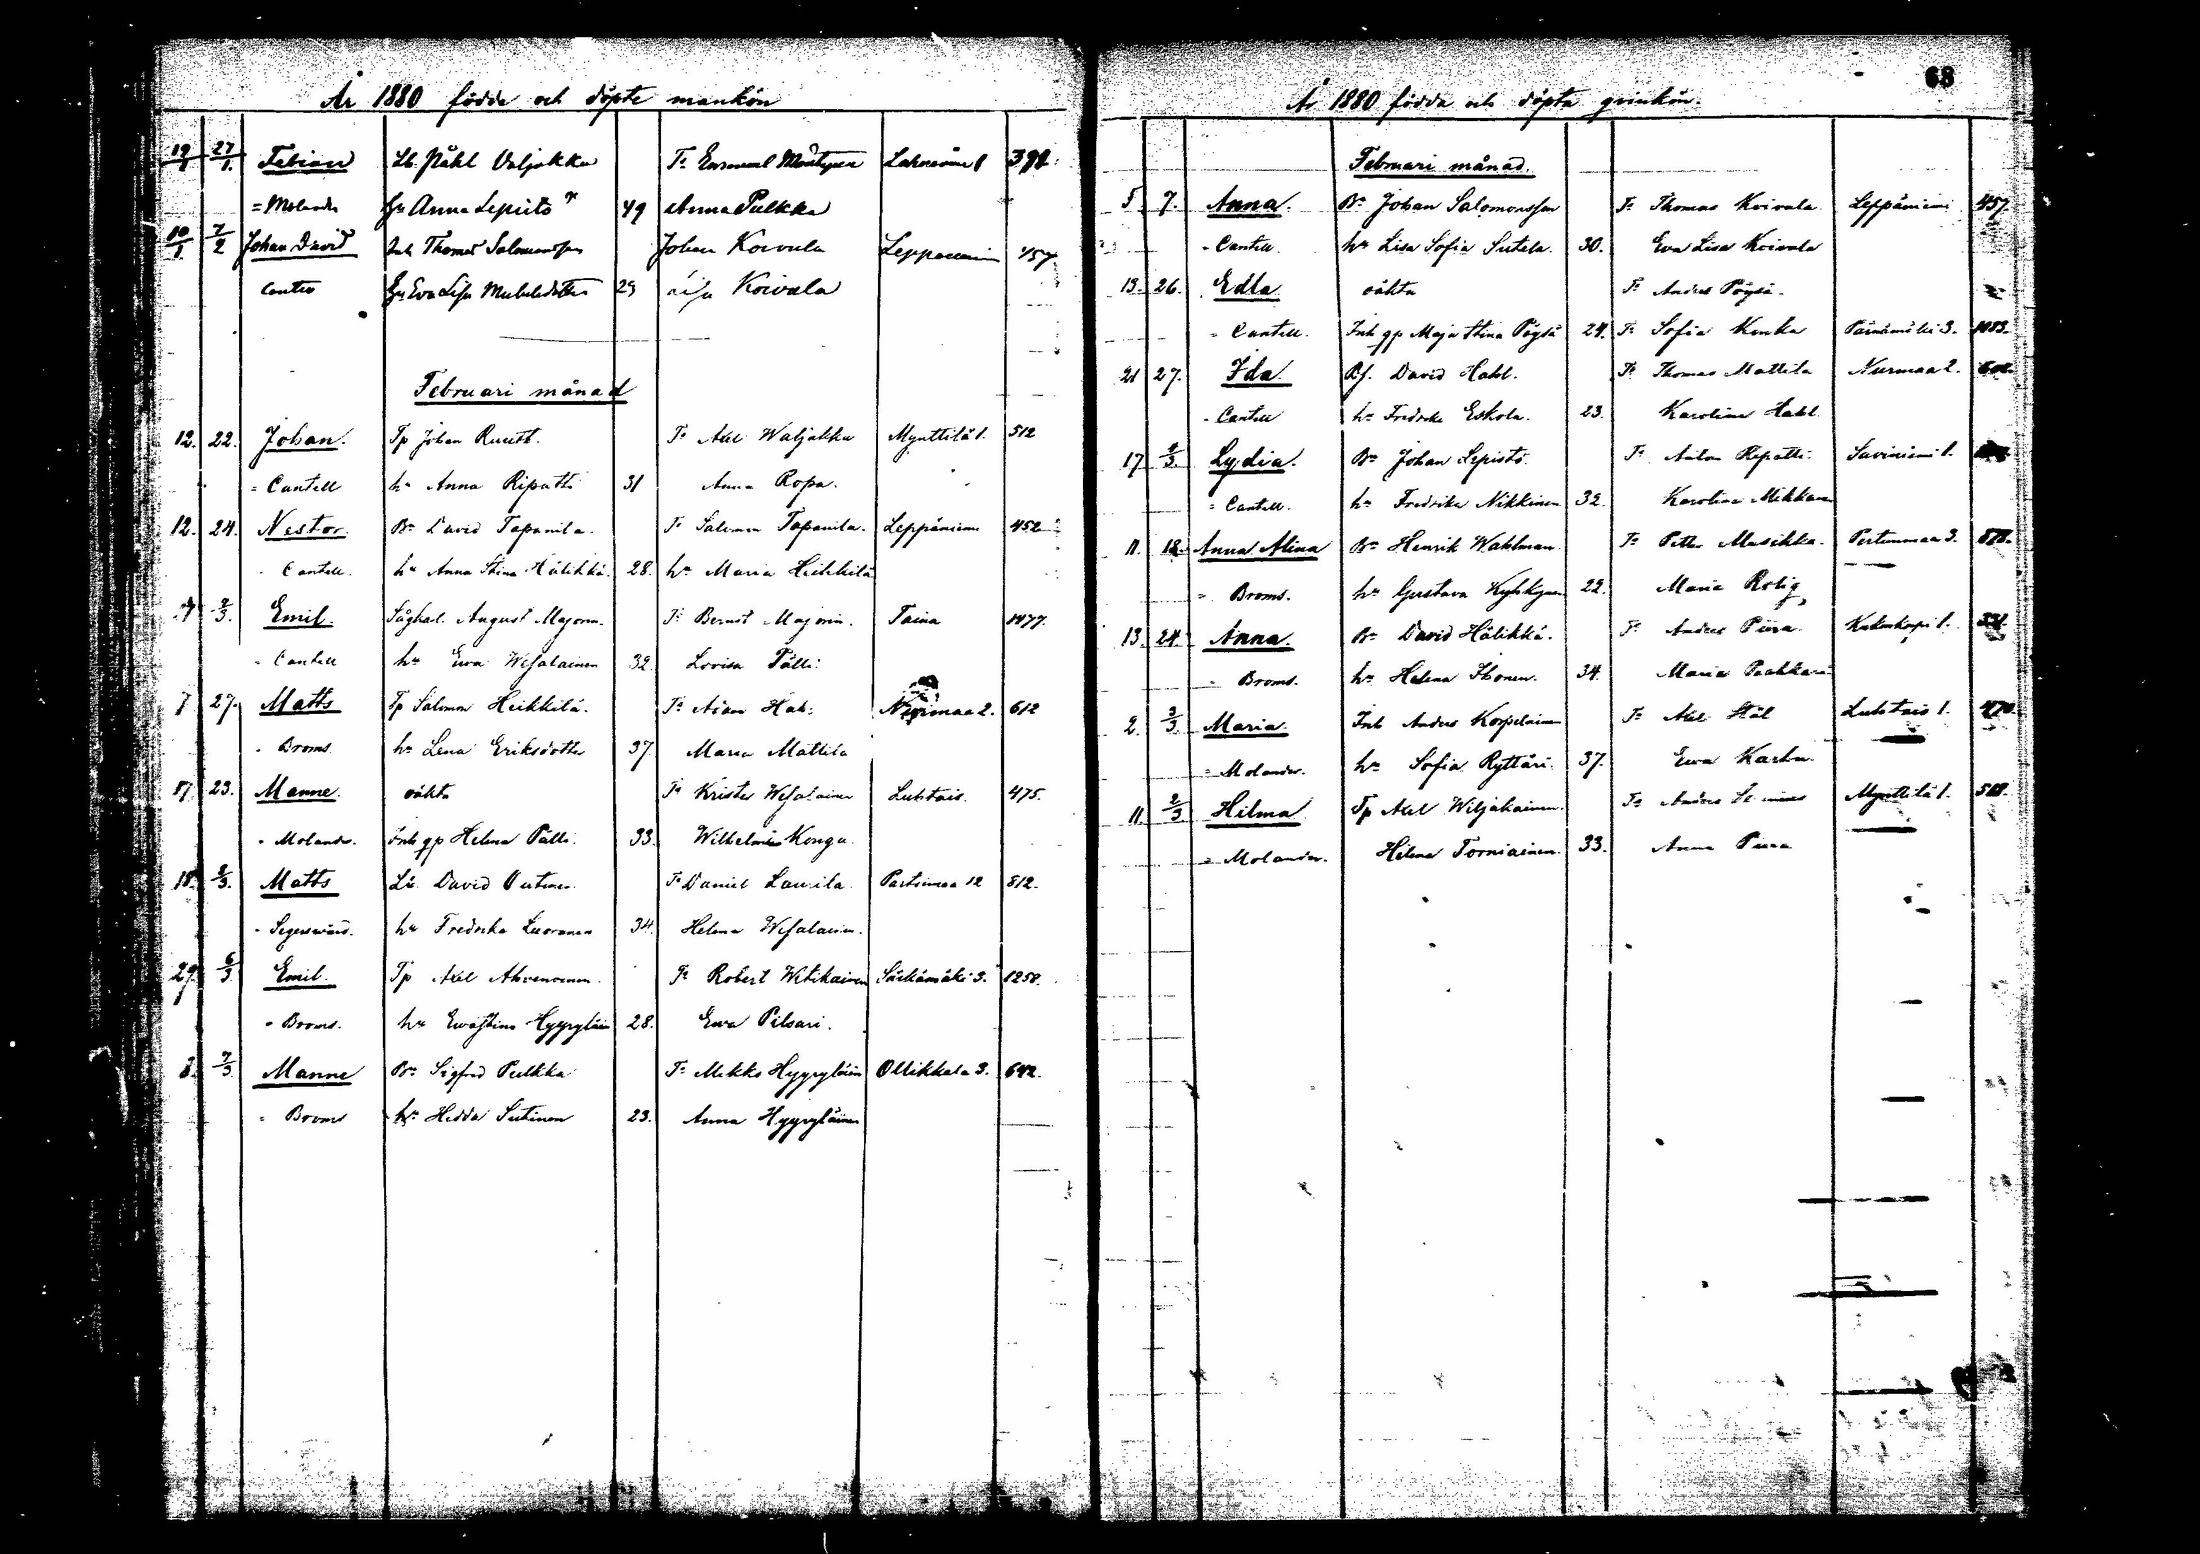 År 1880 födda och döpte mankön
19/1 27/1. Fabian Lb. Påhl Valjakka Fr Emanuel Mäntynen 1 392.
= Molander Hu Anna Lepistö 49 Anna Pulkka
10/1 7/2 Johan David Inh Thomas Salomonsson Johan Koivula Leppäniemi 457.
Cantell Hu Eva Lisa 29 Koivula
Februari månad
12. 22. Johan. Tp Johan Ruuth. Fr Axel Waljakka Mynttilä 1. 512
= Cantell hu Anna Ripatti 31 Anna Ropa.
12. 24. Nestor. Br David Tapanila. Fr Salomon Tapanila. Leppäniemi 452
- Cantell. hu Anna Stina Hälikkä. 28. hu Maria Heikkilä
2/3. Emil. August Majorin. Fr Bernt Majorin. Taina 1477.
- Cantell hu Ewa Wesalainen 32. Lovisa Pälli
7 27. Matts Tp Salmon Heikkilä. Fr Adam Hak: Nurmaa 2. 612
- Broms. hu Lena Eriksdotter 37. Maria Mattila
17 23. Manne. oäkta Fr Krister Wesalainen Luhtais. 475.
- Molander. Inh gp Helena Pälli. 33. Wilhelmina Konga.
18. 2/3. Matts David Fr Daniel Laurila. Partsimaa 12 812.
- Segerswärd. hu Fredrika Luoranen 34. Helena Wesalainen.
29. 6/3. Emil. Tp Axel Ahvenainen. Fr Robert Witikainen Särkämäki 3. 1258.
- Broms. hu Ewastina Hyyryläin 28. Ewa Pilsari.
3. 7/3. Manne Br Sigfrid Pulkka Fr Mikko Hyyryläin Ollikkala 3. 642.
- Broms hu Hedda Sutinen 23. Anna Hyyryläinen
68
År 1880 födda och döpta qvinkön.
Februari månad.
5 7. Anna. Br Johan Salomonsson Fr Thomas Koivala Leppäniemi 457.
- Cantell. hu Lisa Sofia Sutela. 30. Eva Lisa Koivala
13. 26. Edla oäkta Fr Anders Pöysä.
- Cantell. Inh gp Maja Stina Pöysä 24. Fr Sofia Konka 3. 1083.
21 27. Ida. Bf. David Hakl. Fr Thomas Mattila Nurmaa 2.
- Cantell hu Fredrika Eskola. 23. Karolina Hakl
17 2/3. Lydia. Br Johan Lepistö. Fr Anton Ripatti. Saviniemi 1.
- Cantell. hu Fredrika Nikkinen 32. Karolina Mikkanen
11. 18. Anna Alina Br Henrik Wahlman. Fr Petter Masikka. Pertunmaa 3.
- Broms. hu Gustava Kyhkynen 22. Maria Rolig
13. 24. Anna. Br David Hälikkä. Fr Anders Piira. 1.
- Broms. hu Helena Ihonen. 34. Maria Paakkari
2. 3/3. Maria Inh Anders Korpelainen Fr Axel Stål Luhtais 1. 470.
- Molander. hu Sofia Ryttäri. 37. Ewa Karhu.
11. 2/3 Hilma Tp Axel Wiljakainen. Fr Anders Mynttilä 1.
- Molander. Helena Torniainen. 33. Anna Piira